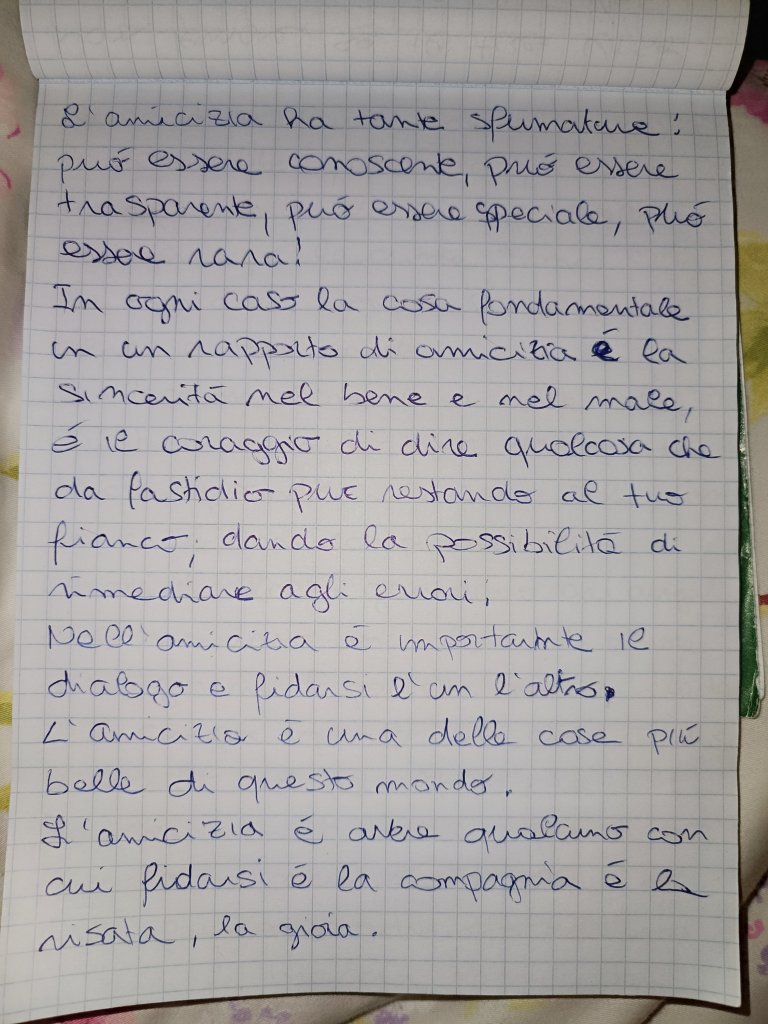 L'amicizia ha tante sfumature:
può essere conoscente, può essere
trasparente, può essere speciale, può
essere rara!
In ogni caso la cosa fondamentale
in un rapporto di amicizia è la
sincerità nel bene e nel male,
é il coraggio di dire qualcosa che
da fastidio pur restando al tuo
fianco, dando la possibilità di
rimediare agli errori,
Nell'amicizia è importante il
dialogo e fidarsi l'un l'altro.
L'amicizia è una delle cose più
belle di questo mondo.
L'amicizia é avere qualcuno con
cui fidarsi é la compagnia é la
risata, la gioia.